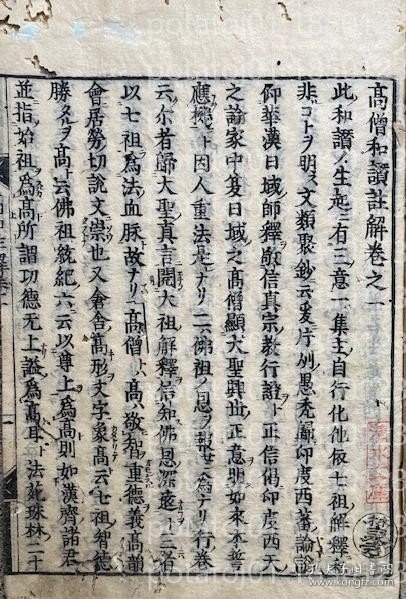 高僧和讃註解卷之一
此和讃ノ生起ニ有三意一集主自行化他依七祖解釋
非コトヲ明ス文類聚鈔云爰片州愚禿歸印度西蕃論説
仰華漢日域師釋敬信真宗教行證ト正信偈印度西天
之論家中夏日域之高僧顯大聖興世正意明如來本誓
應機ト因人重法是ナリ二佛祖ノ恩ヲ報ニ為ナリ行卷
云尓者歸大聖真言閱大祖解釋信知佛恩深遠ト三者
以七祖為法血脉故ナリ高僧ト高ハ敬智重德義高韻
會居勞切說文崇也又倉舍高形文字象高云七祖智德
勝タルヲ高ト云佛祖統紀六云以尊上為高則如漢齊諸君
並指始祖為高所謂功德无上謚為高耳法苑珠林二十